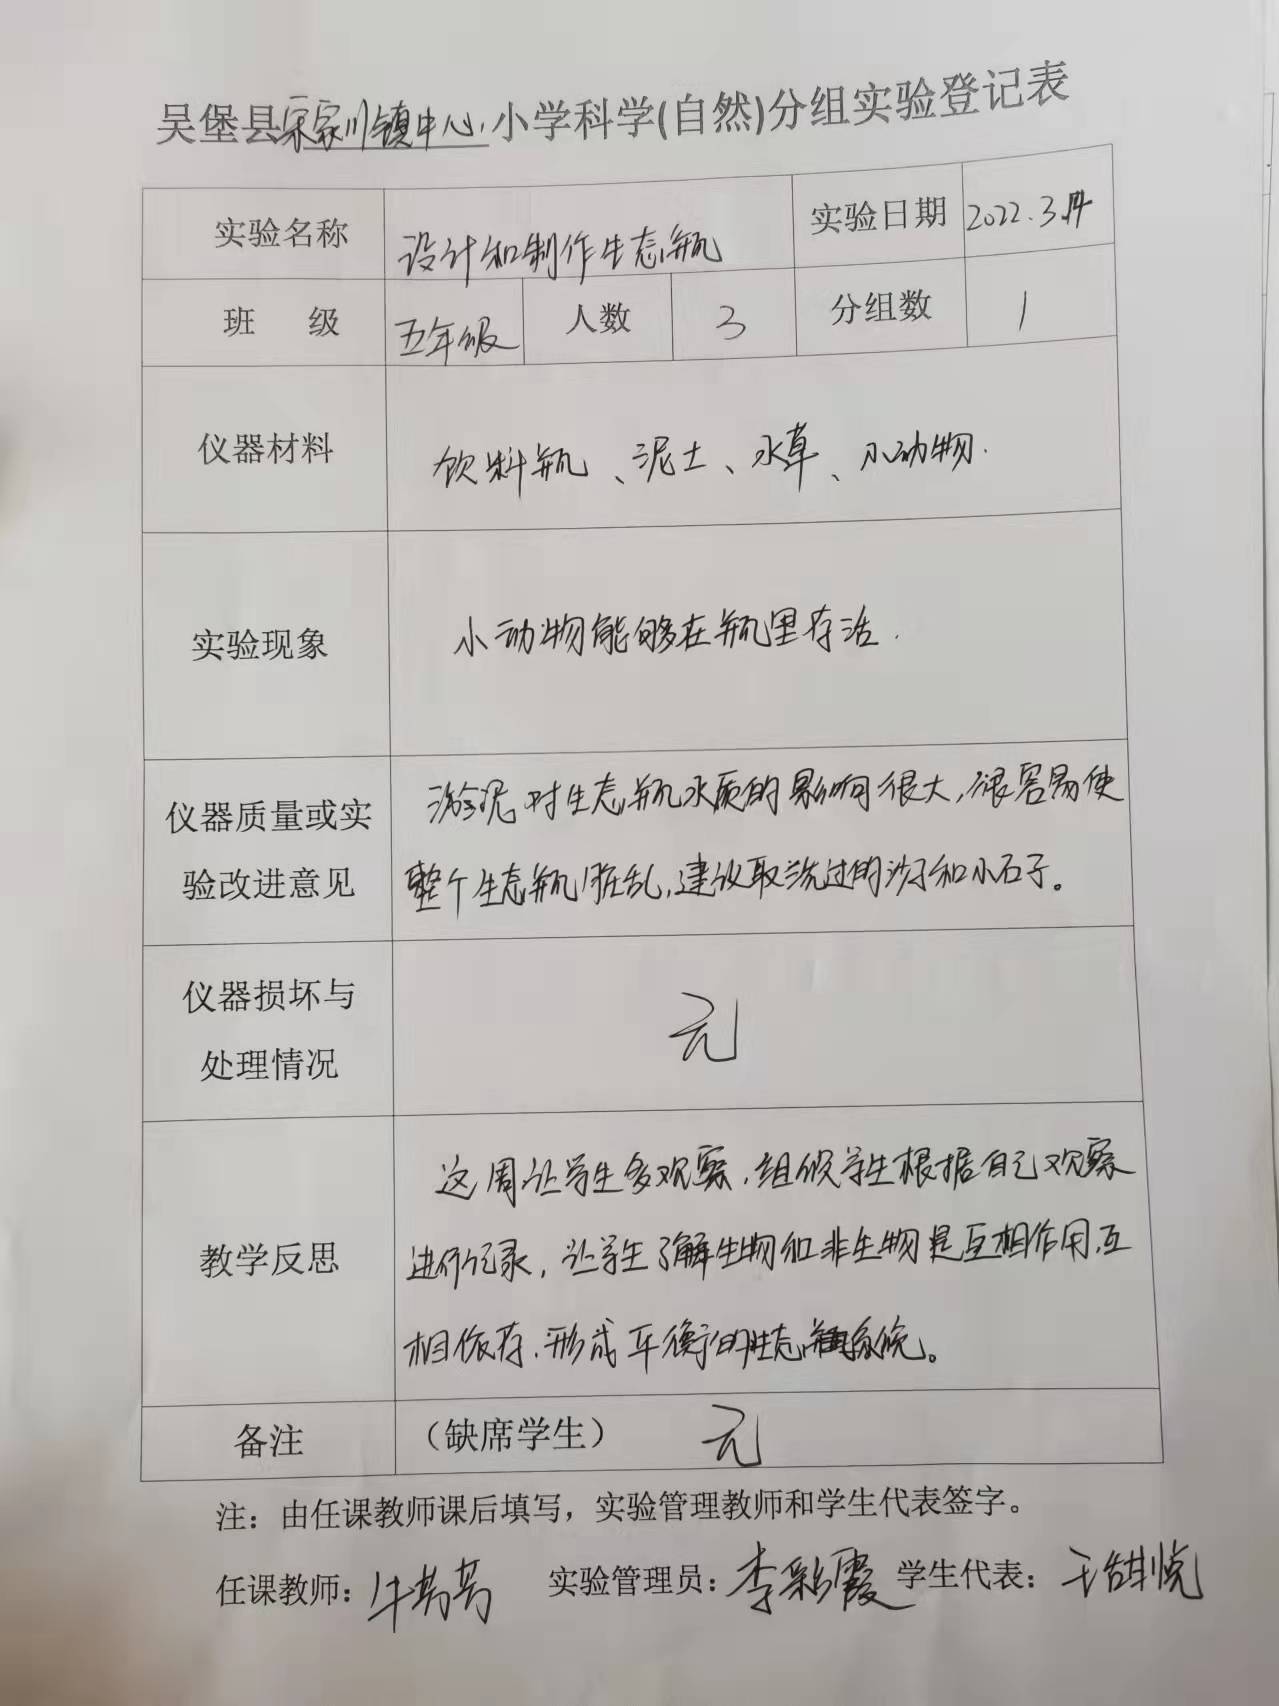 吴堡县宋家川镇中心小学科学(自然)分组实验登记表
实验名称 设计和制作生态瓶 实验日期 2022.3.14
班 级 五年级 人数 3 分组数 1
仪器材料 饮料瓶、泥土、水草、小动物.
实验现象 小动物能够在瓶里存活.
仪器质量或实验改进意见
淤泥对生态瓶水质的影响很大,很容易使
整个生态瓶脏乱,建议取洗过的沙子和小石子。
仪器损坏与处理情况 无
教学反思
这周让学生多观察,组织学生根据自己观察
进行记录,让学生了解生物和非生物是互相作用,互
相依存,形成平衡的生态系统。
备注 (缺席学生) 无
注：由任课教师课后填写，实验管理教师和学生代表签字。
任课教师: 牛芳芳 实验管理员: 李彩霞 学生代表: